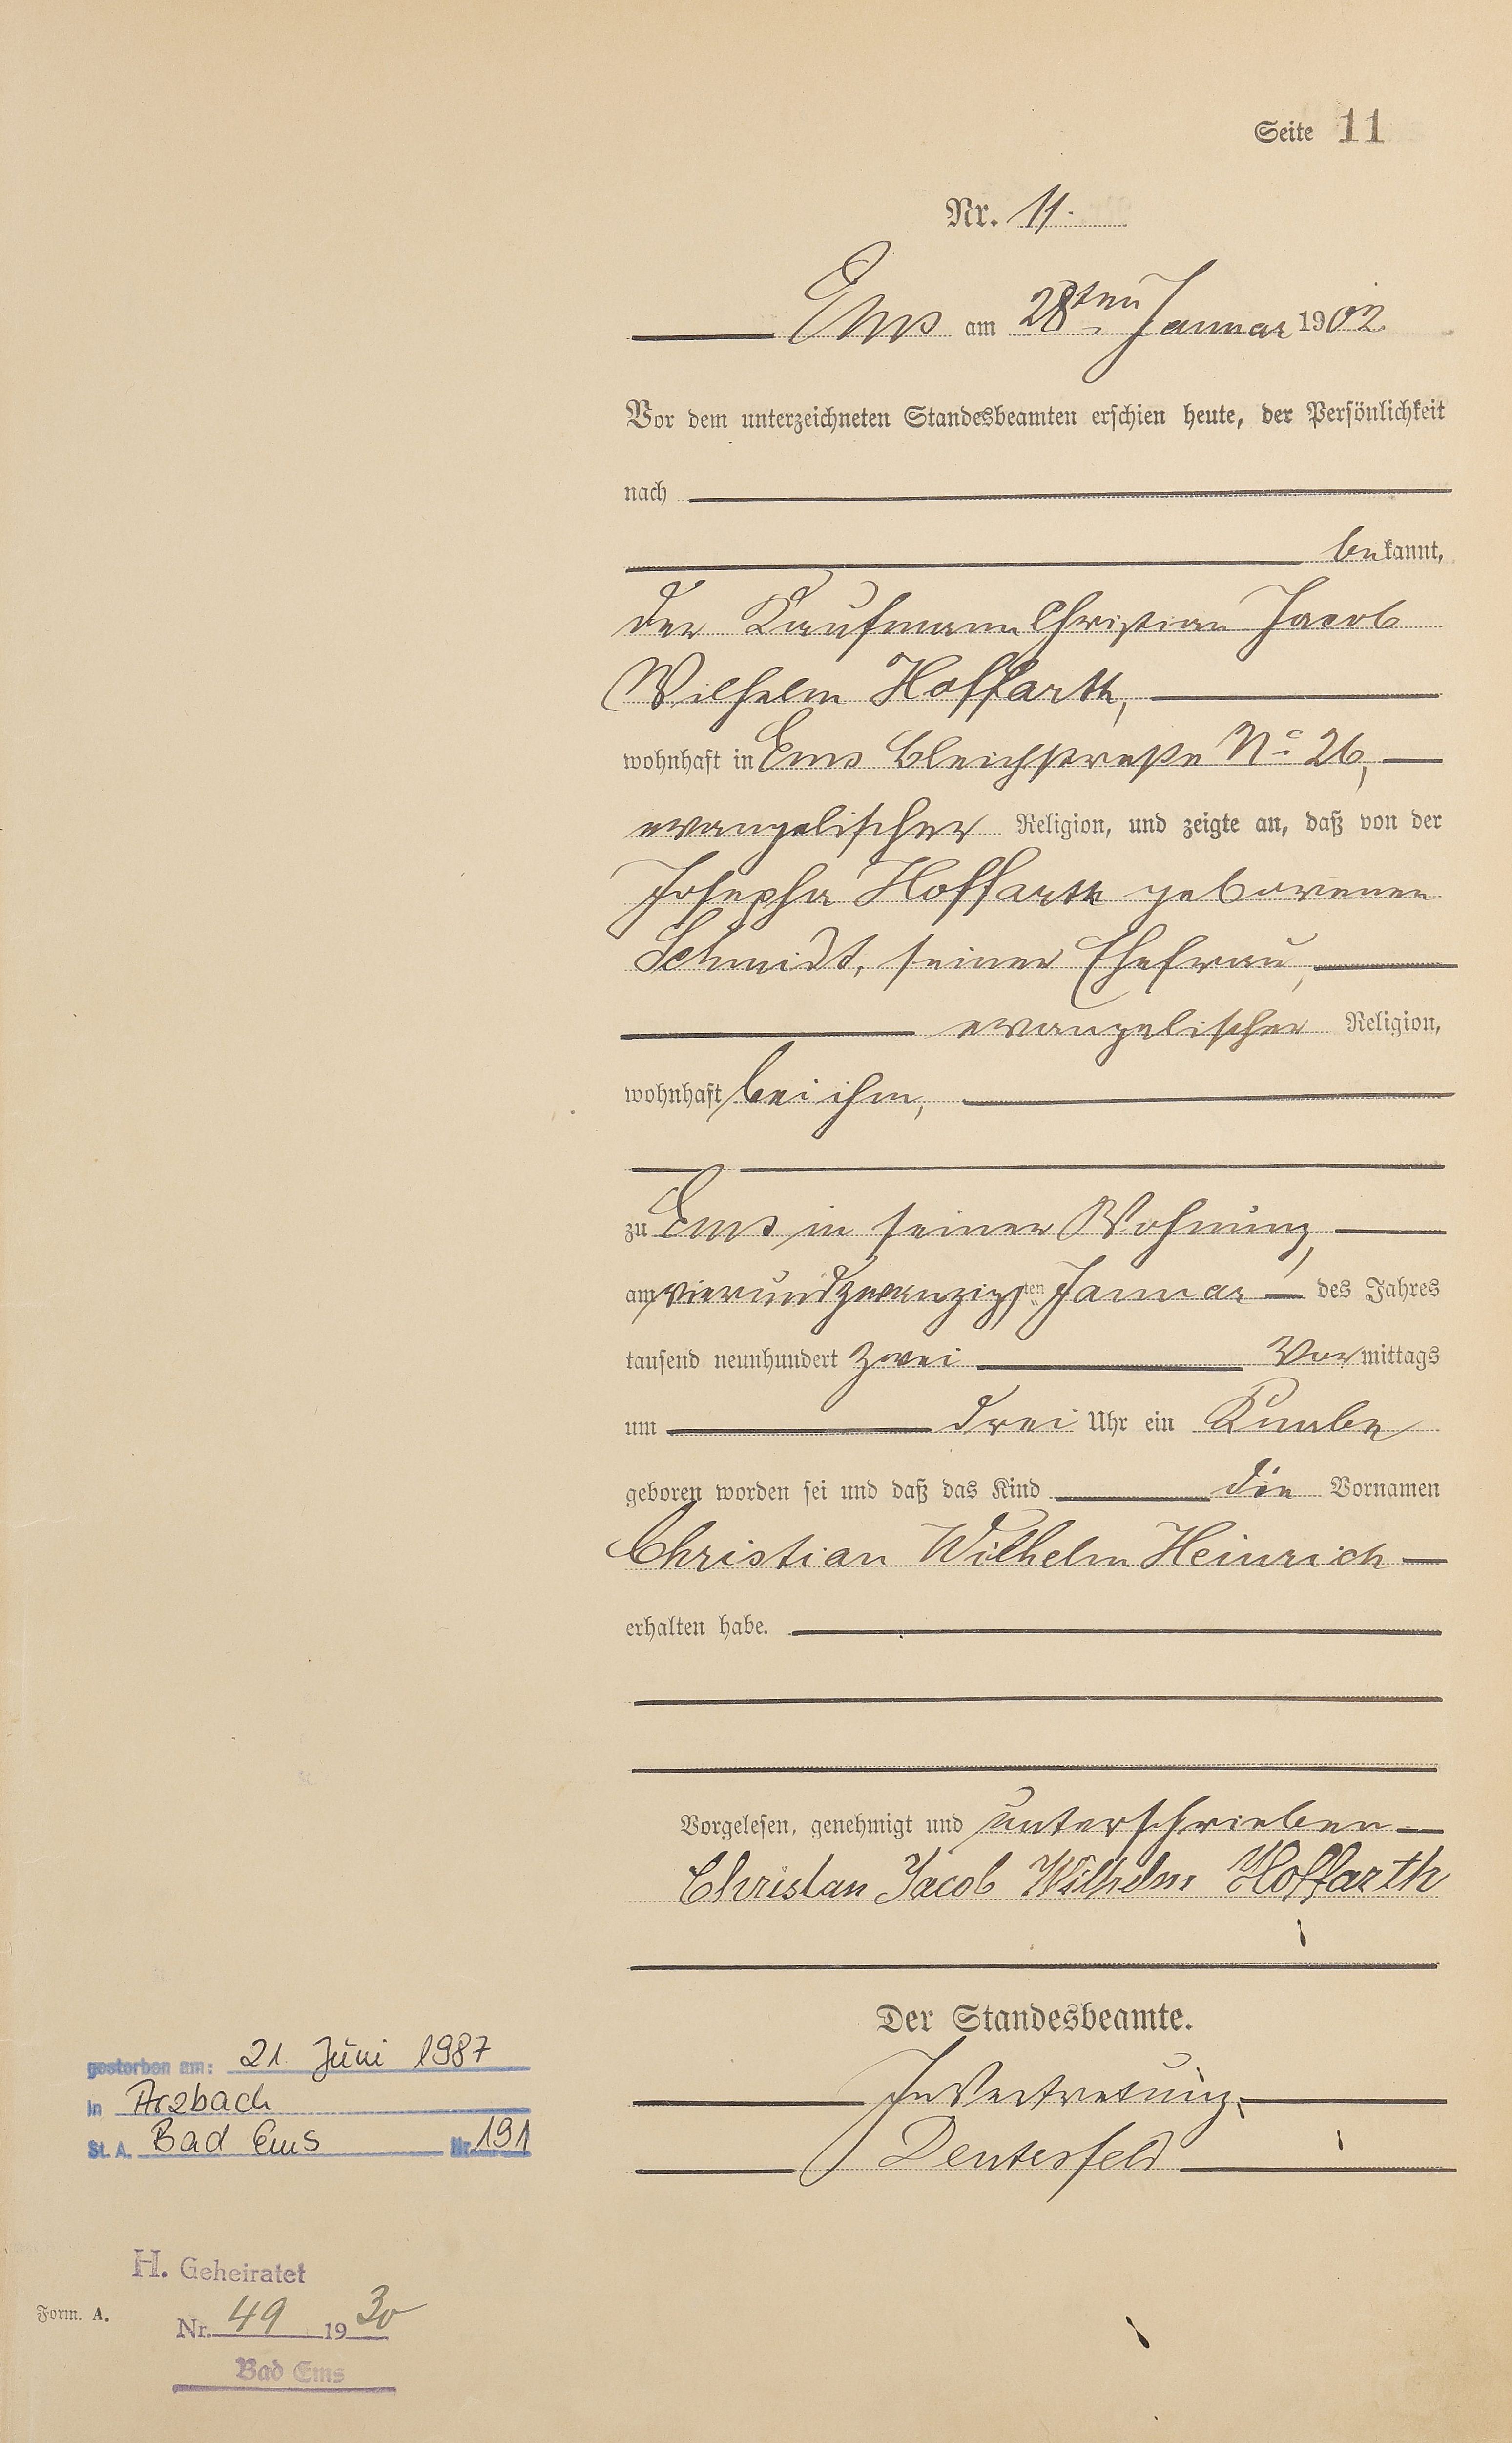 Seite 11
Nr. 11.
Ems am 28ten Januar 1902
Vor dem unterzeichneten Standesbeamten erschien heute, der Persönlichkeit
nach
bekannt,
der Kaufmann Christian Jacob
Wilhelm Hoffarth,
wohnhaft in Ems Bleichstraße No 26,
evangelischer Religion, und zeigte an, daß von der
Josepha Hoffarth geborenen
Schmidt, seiner Ehefrau,
evangelischer Religion,
wohnhaft bei ihm,
zu Ems in seiner Wohnung,
am vierundzwanzigsten Januar des Jahres
tausend neunhundert zwei Vormittags
um drei Uhr ein Knabe
geboren worden sei und daß das Kind die Vornamen
Christian Wilhelm Heinrich
erhalten habe.
Vorgelesen, genehmigt und unterschrieben
Christian Jacob Wilhelm Hoffarth
Der Standesbeamte.
In Vertretung.
gestorben am: 21. Juni 1987
in Arzbach
St. A. Bad Ems Nr. 191
H. Geheiratet
Form. A.
Nr. 49 1930
Bad Ems